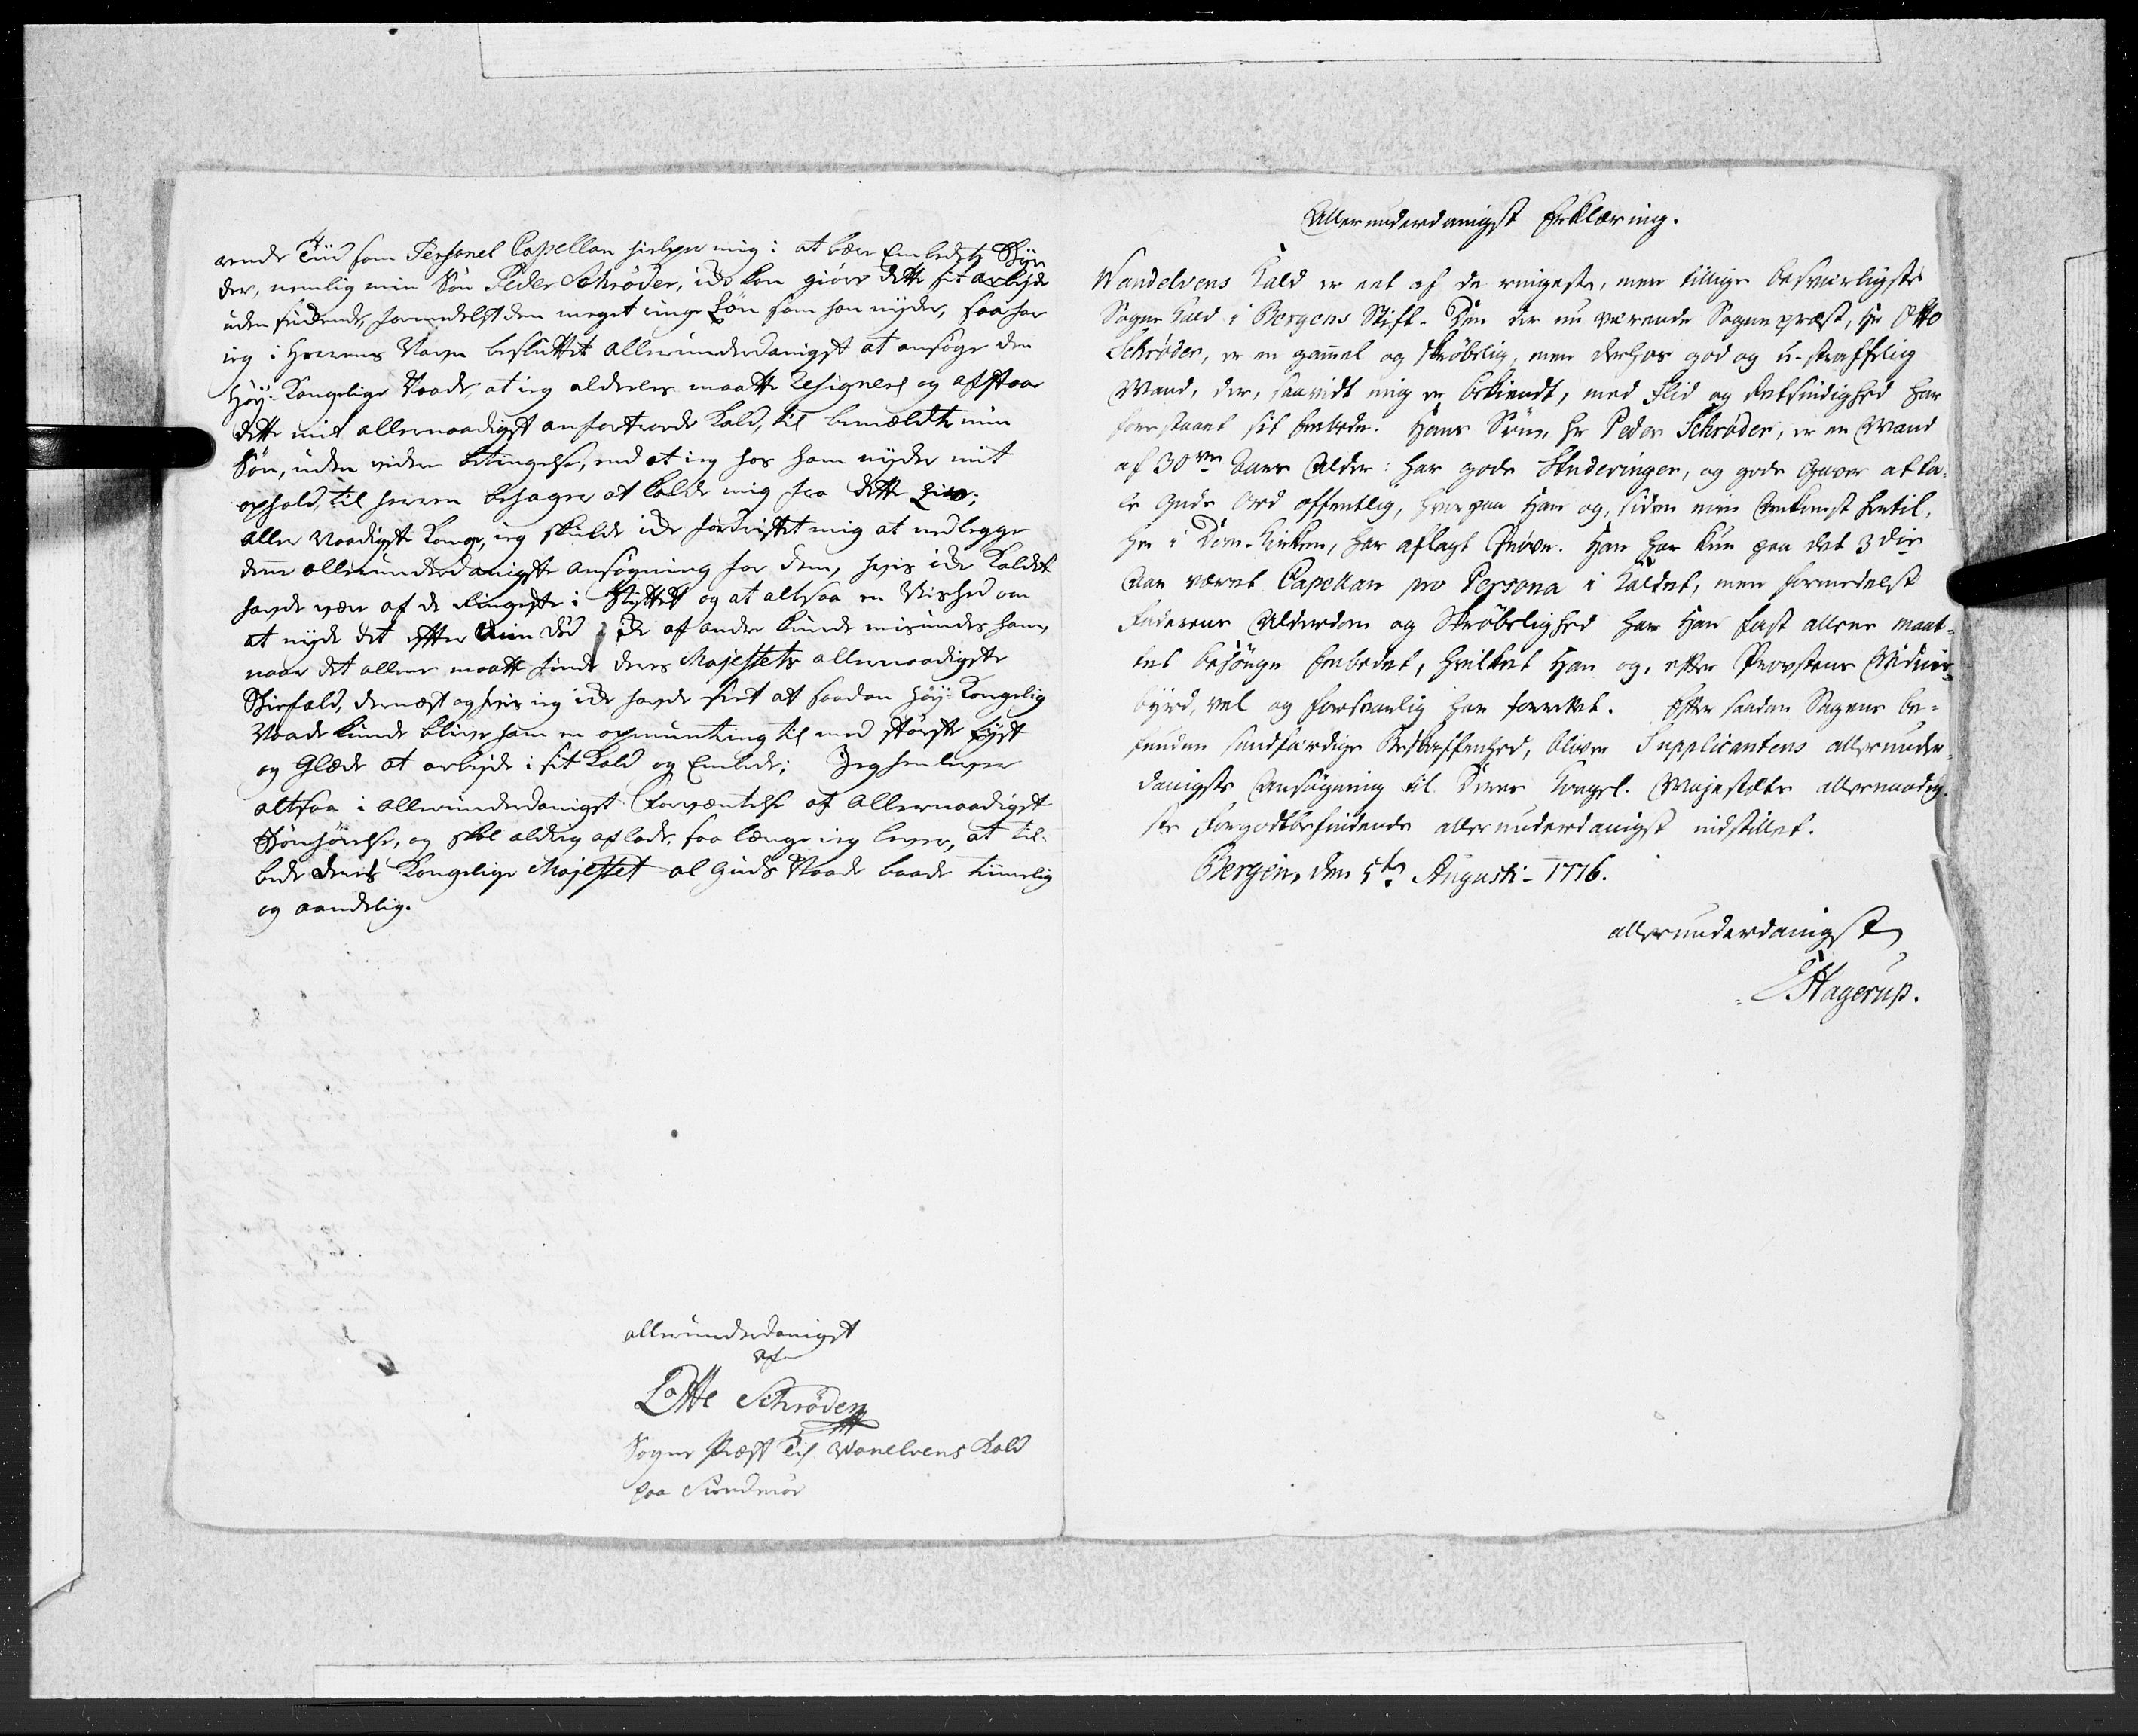 rende Tiid som Personel Capellan hielper mig i at bære Embedets Byr
der, nemlig min Søn Peder Schrøder, ide kan giøre dette sit arbejde
uden sukkende, formedelst den meget ringe Løn som han nyder, saa har
ieg i Herrens Navn besluttet allerunderdanigst at ansøge den
Høy-Kongelige Naade, at ieg aldeeles maatte Resignere og afstaae
dette mit allernaadigst anfortroede Kald, til bemældte min
Søn, uden viidere betingelse, end at ieg hos ham nyder mit
ophold, til herren behager at kalde mig fra dette Liv;
Aller Naadigste Konge, ieg skulde ide fordristet mig at nedlegge
denne allerunderdanigste ansøgning for dem, hvis ide Kaldet
havde være af de Ringeste i Stiftet og at altsaa en Vished om
at nyde det efter min død ide af andre kunde misundes ham,
naar det allene maatte finde deres Majestets allernaadigste
Biefald, dernæst og hvis ieg ide havde seet at saadan Høy-Kongelig
Naade kunde blive ham en opmuntring til med største Lyst
og Glæde at arbejde i sit Kald og Embede; Jeg henlever
altsaa i allerunderdanigst Forventelse af allernaadigst
Bønhørelse, og skal aldrig aflade, saa længe ieg lever, at til-
bede deres Kongelige Majestet al Guds Naade baade timelig
og aandelig.
allerunderdanigst
af
Otte Schrøder
Sogne Præst til Wanelvens Kald
paa Sundmør
Allerunderdanigst Erklæring.
Wandelvens Kald er eet af de ringeste, men tillige besværligste
Sogne Kald i Bergens Stift. Den der nu værende Sognepræst, Hr Otto
Schrøder, er en gammel og skrøbelig, men derhos god og u-straffelig
Mand, der, saavidt mig er bekiendt, med Flid og Retsindighed har
forestaaet sit Embede. Hans Søn, Hr Peder Schrøder, er en Mand
af 30ve Aars Alder: har gode Studeringer, og gode Gaver at ta-
le Guds Ord offentlig, hvorpaa Han og, siden min Ankomst hertil,
her i Dom-Kirken, har aflagt Prøve. Han har kun paa det 3die
Aar været Capellan pro Persona i Kaldet, men formedelst
Faderens Alderdom og Skrøbelighed har Han fast allene maat-
tet besørge Embedet, hvilket Han og, efter Provstens Vidnis-
byrd, vel og forsvarlig har forrettet. Efter saadan Sagens be-
fundne sandfærdige Beskaffenhed, bliver Supplicantens allerunder-
danigste Ansøgning til Deres Kongel. Majestæts allernaadig-
ste Forgodtbefindende allerunderdanigst indstillet.
Bergen, den 5te Augusti 1776.
allerunderdanigst
E Hagerup.